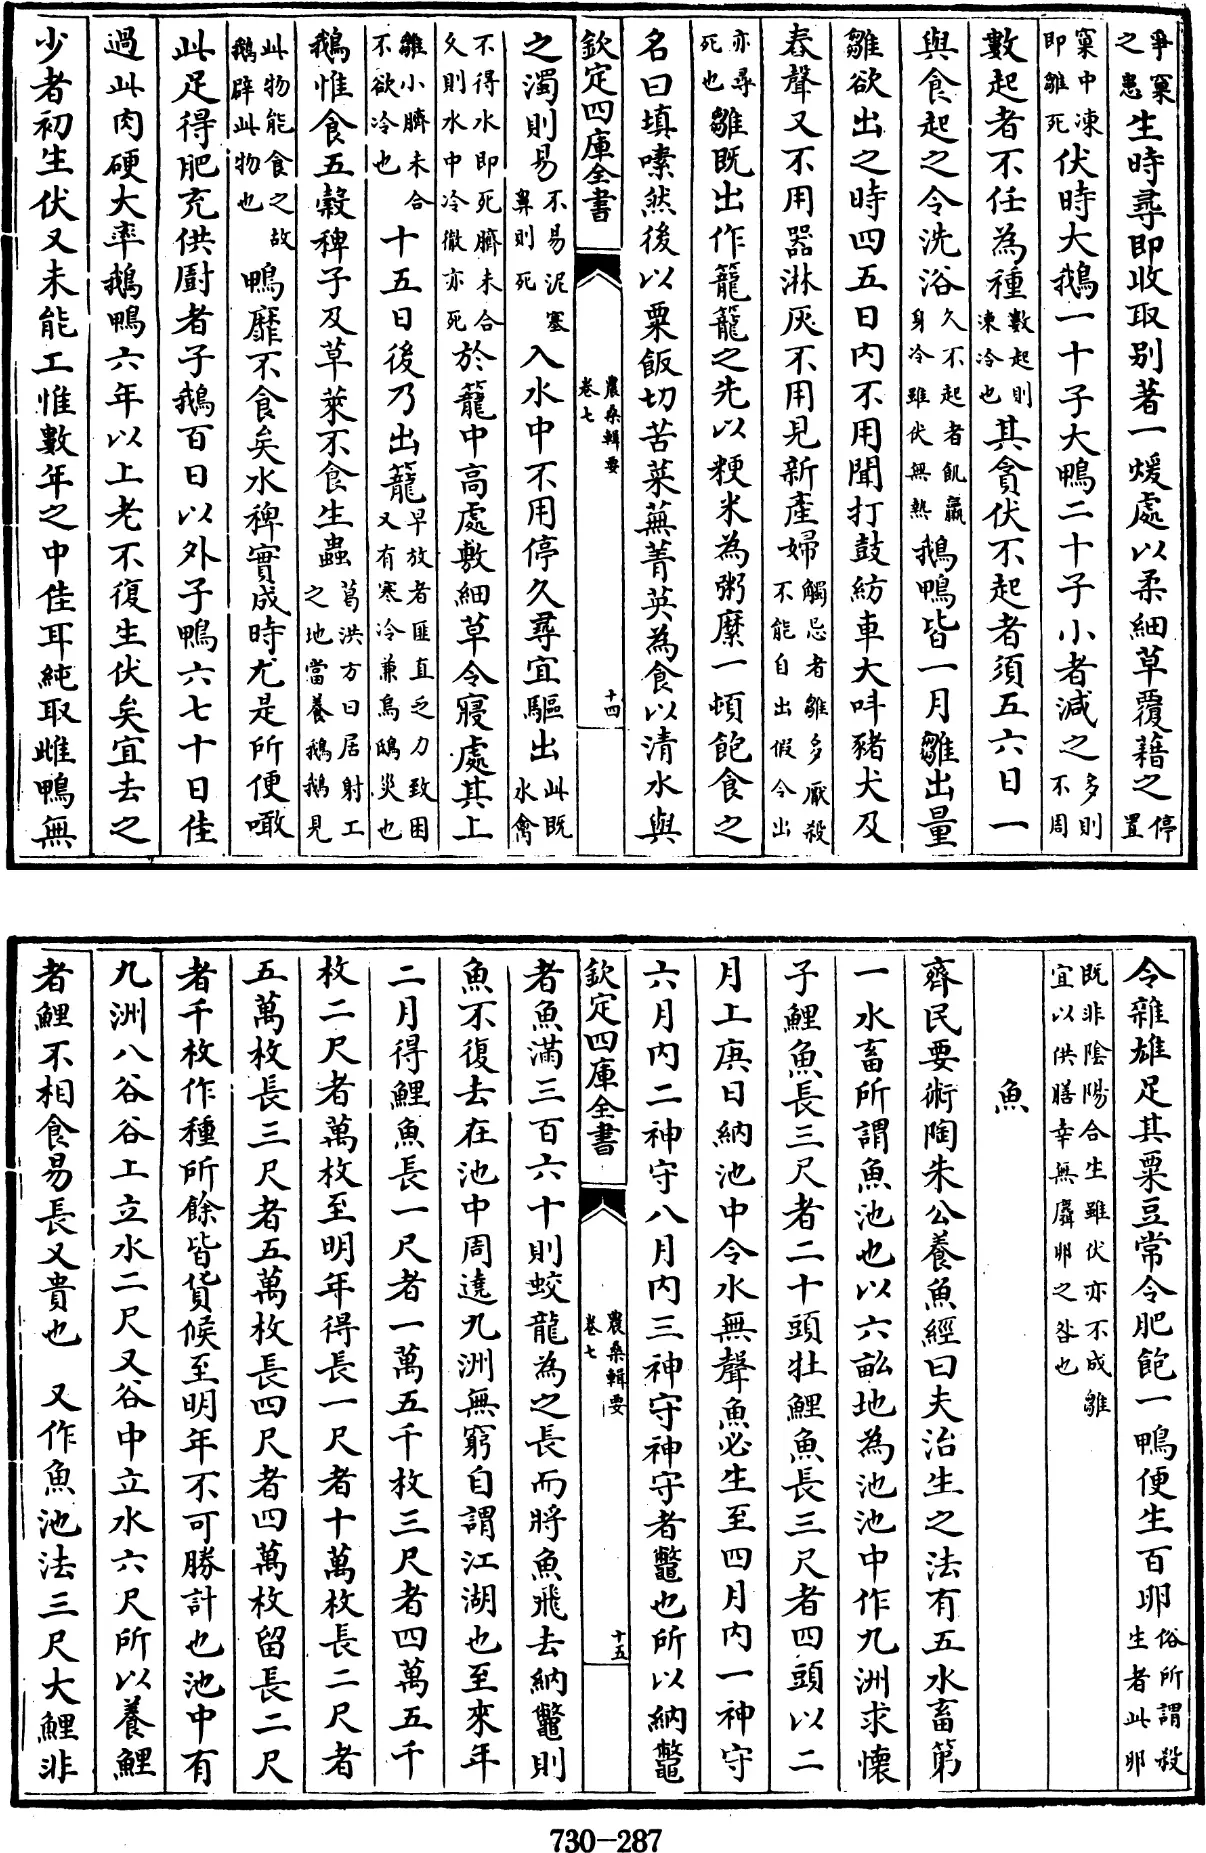 爭窠之患生時尋即收取别著一煖處以柔細草覆藉之停置
窠中凍即雛死伏時大鵝一十子大鴨二十子小者減之多則不周
數起者不任為種數起則凍冷也其貪伏不起者須五六日一
與食起之令洗浴久不起者飢羸身冷雖伏無熱鵝鴨皆一月雛出量
雛欲出之時四五日内不用聞打鼓紡車大叫豬犬及
舂聲又不用器淋灰不用見新產婦觸忌者雛多厭殺不能自出假令出
亦尋死也雛既出作籠籠之先以粳米為粥糜一頓飽食之
名曰填嗉然後以粟飯切苦菜蕪菁英為食以清水與
欽定四庫全書 農桑輯要 卷七 十四
之濁則易不易泥塞鼻則死入水中不用停久尋宜驅出此既水禽
不得水即死臍未合久則水中冷徹亦死於籠中高處敷細草令寢處其上
雛小臍未合不欲冷也十五日後乃出籠早放者匪直乏力致困又有寒冷兼烏鴟災也
鵝惟食五穀稗子及草菜不食生蟲葛洪方曰居射工之地當養鵝鵝見
此物能食之故鵝辟此物也鴨靡不食矣水稗實成時尤是所便噉
此足得肥充供厨者子鵝百日以外子鴨六七十日佳
過此肉硬大率鵝鴨六年以上老不復生伏矣宜去之
少者初生伏又未能工惟數年之中佳耳純取雌鴨無
令雜雄足其粟豆常令肥飽一鴨便生百卵俗所謂殺生者此卵
既非陰陽合生雖伏亦不成雛宜以供膳幸無麛卵之咎也
魚
齊民要術陶朱公養魚經曰夫治生之法有五水畜第
一水畜所謂魚池也以六畝地為池池中作九洲求懷
子鯉魚長三尺者二十頭牡鯉魚長三尺者四頭以二
月上庚日納池中令水無聲魚必生至四月内一神守
六月内二神守八月内三神守神守者鼈也所以納鼈
欽定四庫全書 農桑輯要 卷七 十五
者魚滿三百六十則蛟龍為之長而將魚飛去納鼈則
魚不復去在池中周遶九洲無窮自謂江湖也至來年
二月得鯉魚長一尺者一萬五千枚三尺者四萬五千
枚二尺者萬枚至明年得長一尺者十萬枚長二尺者
五萬枚長三尺者五萬枚長四尺者四萬枚留長二尺
者千枚作種所餘皆貨候至明年不可勝計也池中有
九洲八谷谷上立水二尺又谷中立水六尺所以養鯉
者鯉不相食易長又貴也 又作魚池法三尺大鯉非
730-287